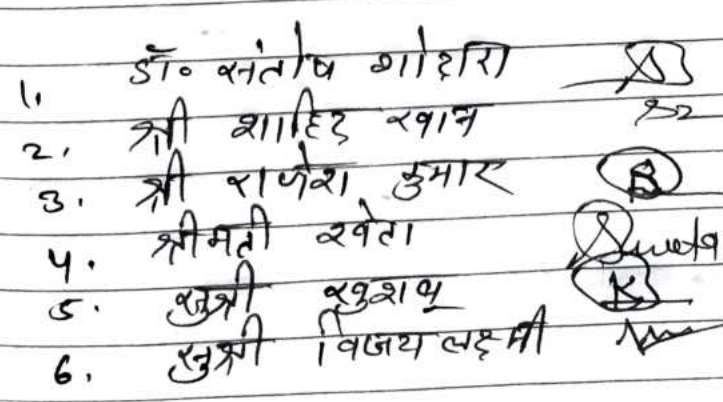 1. डॉ० संतोष गोदारा
2. श्री शाहिद खान
3. श्री राजेश कुमार B
4. श्रीमती श्वेता Sweta
5. सुश्री खुशबू K
6. सुश्री विजय लक्ष्मी